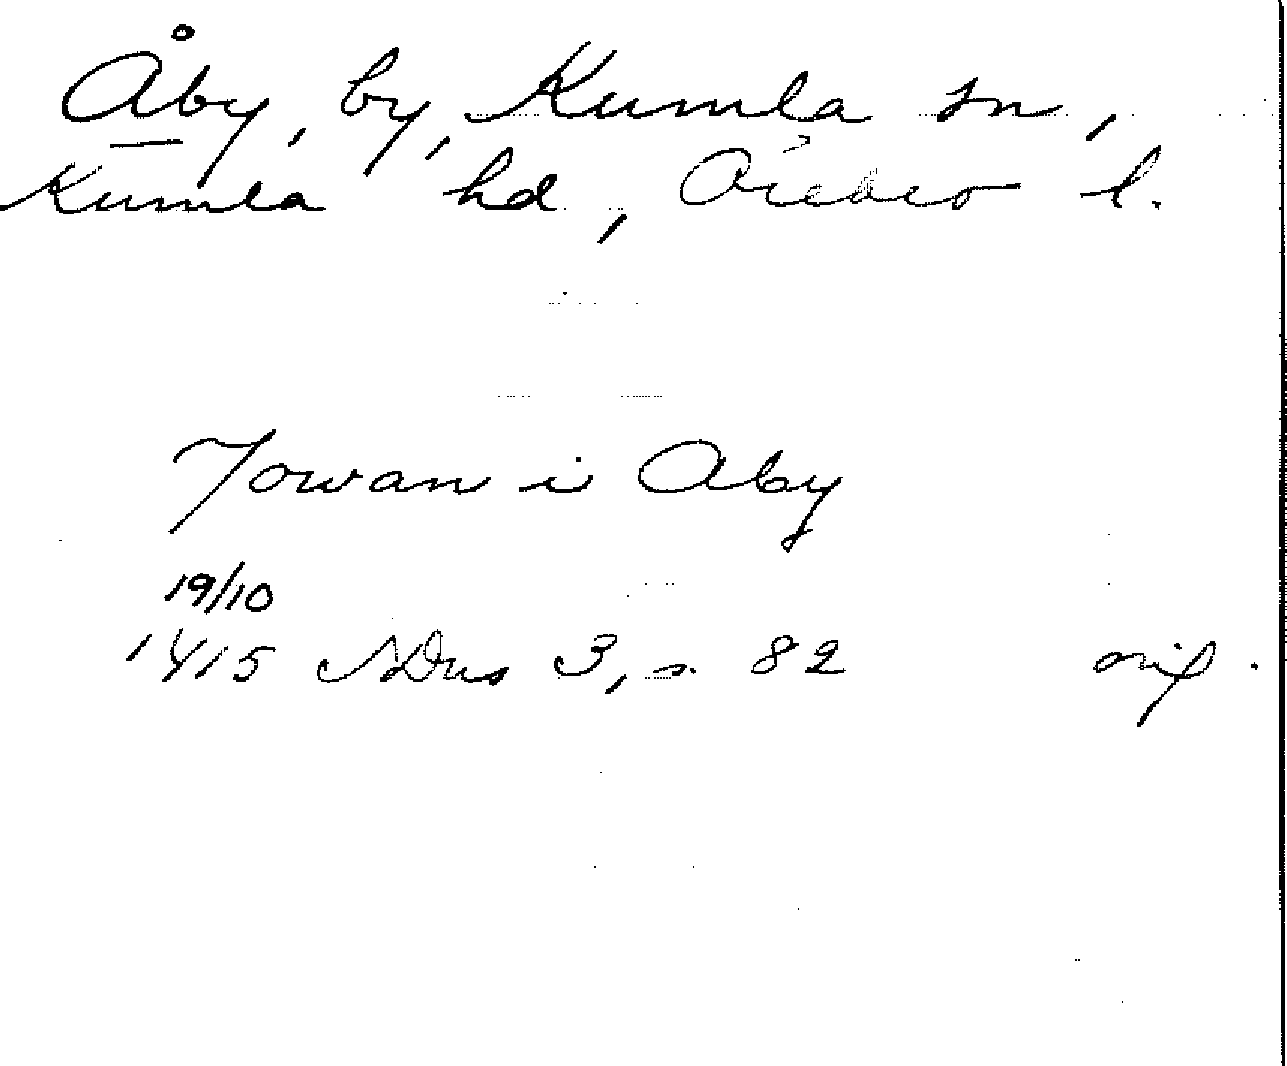 Åby, by, Kumla sn,
Kumla hd, Örebro l.
Jowan i Aby
19/10
1415 SDns 3, s. 82